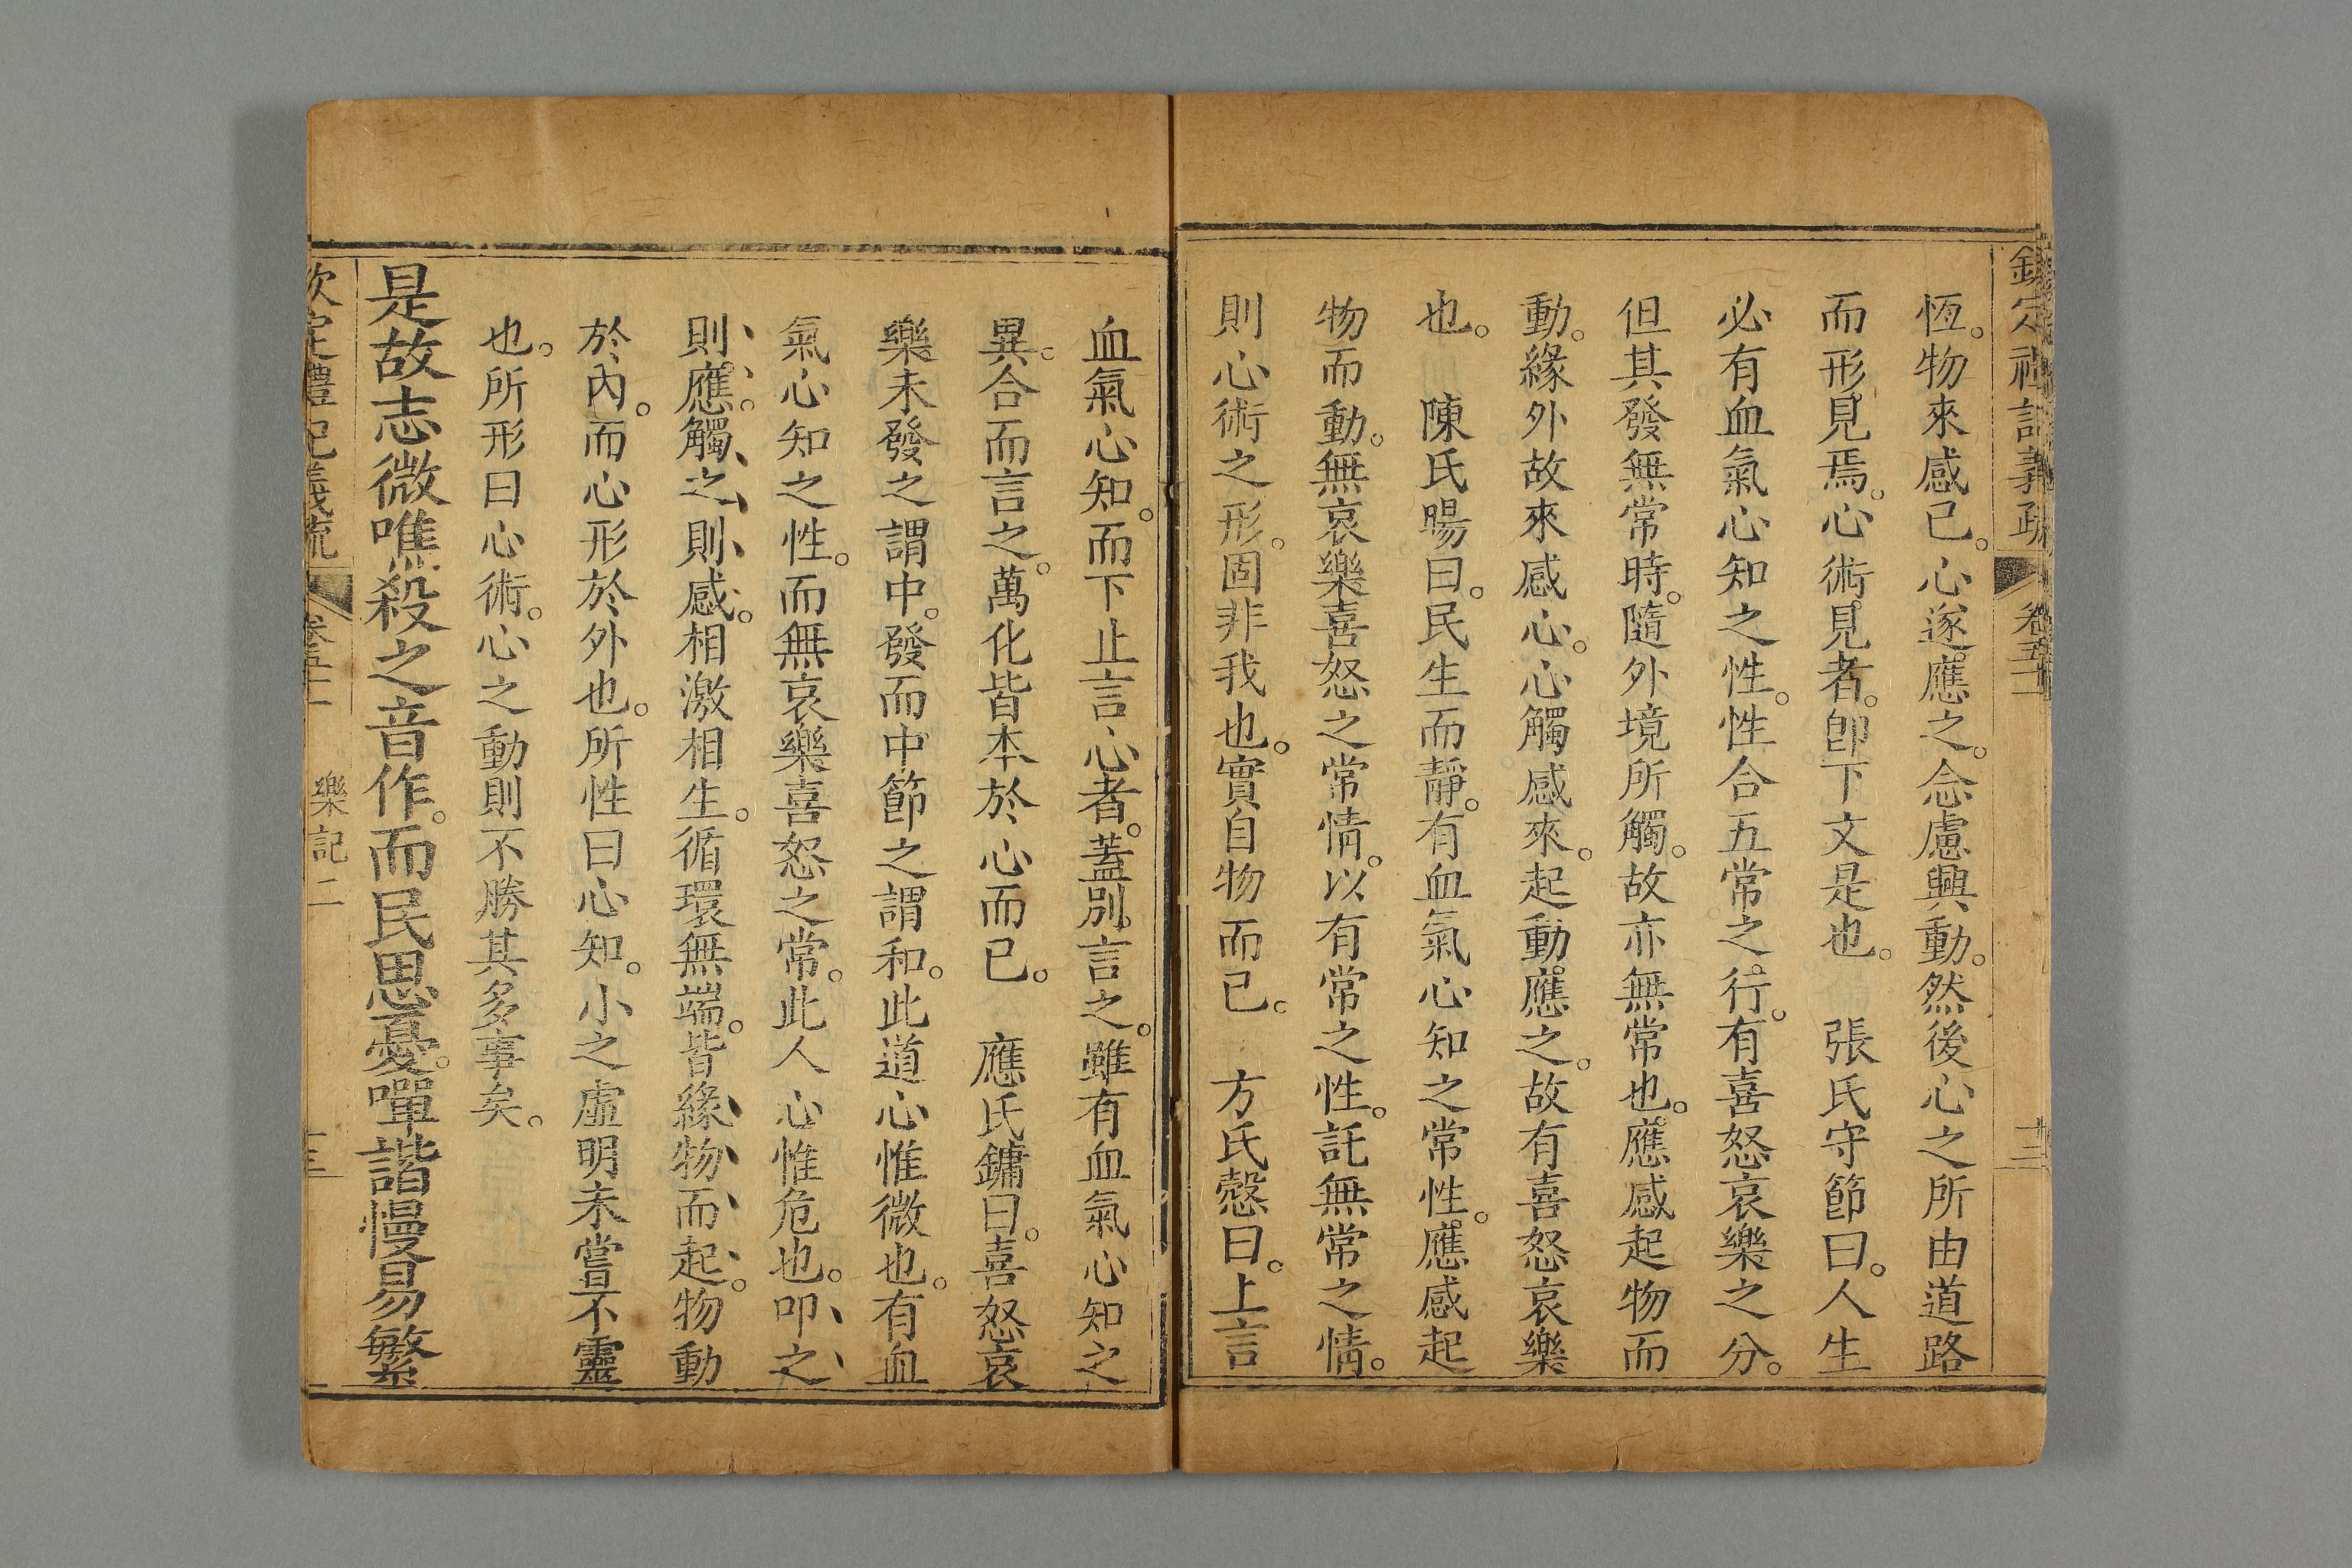 欽定禮記義疏 卷五十二 十二
恆。物來感已。心遂應之。念慮興動。然後心之所由道路
而形見焉。心術見者。卽下文是也。 張氏守節曰。人生
必有血氣心知之性。性合五常之行。有喜怒哀樂之分。
但其發無常時。隨外境所觸。故亦無常也。應感起物而
動。緣外故來感心。心觸感來。起動應之。故有喜怒哀樂
也。 陳氏暘曰。民生而靜。有血氣心知之常性。應感起
物而動。無哀樂喜怒之常情。以有常之性。託無常之情。
則心術之形。固非我也。實自物而已。 方氏慤曰。上言
血氣心知。而下止言心者。蓋別言之。雖有血氣心知之
異。合而言之。萬化皆本於心而已。 應氏鏞曰。喜怒哀
樂未發之謂中。發而中節之謂和。此道心惟微也。有血
氣心知之性。而無哀樂喜怒之常。此人心惟危也。叩之
則應。觸之則感。相激相生。循環無端。皆緣物而起。物動
於內。而心形於外也。所性曰心知。小之虛明未嘗不靈
也。所形曰心術。心之動則不勝其多事矣。
是故志微噍殺之音作。而民思憂。嘽諧慢易繁
欽定禮記義疏 卷五十二 樂記二 十三